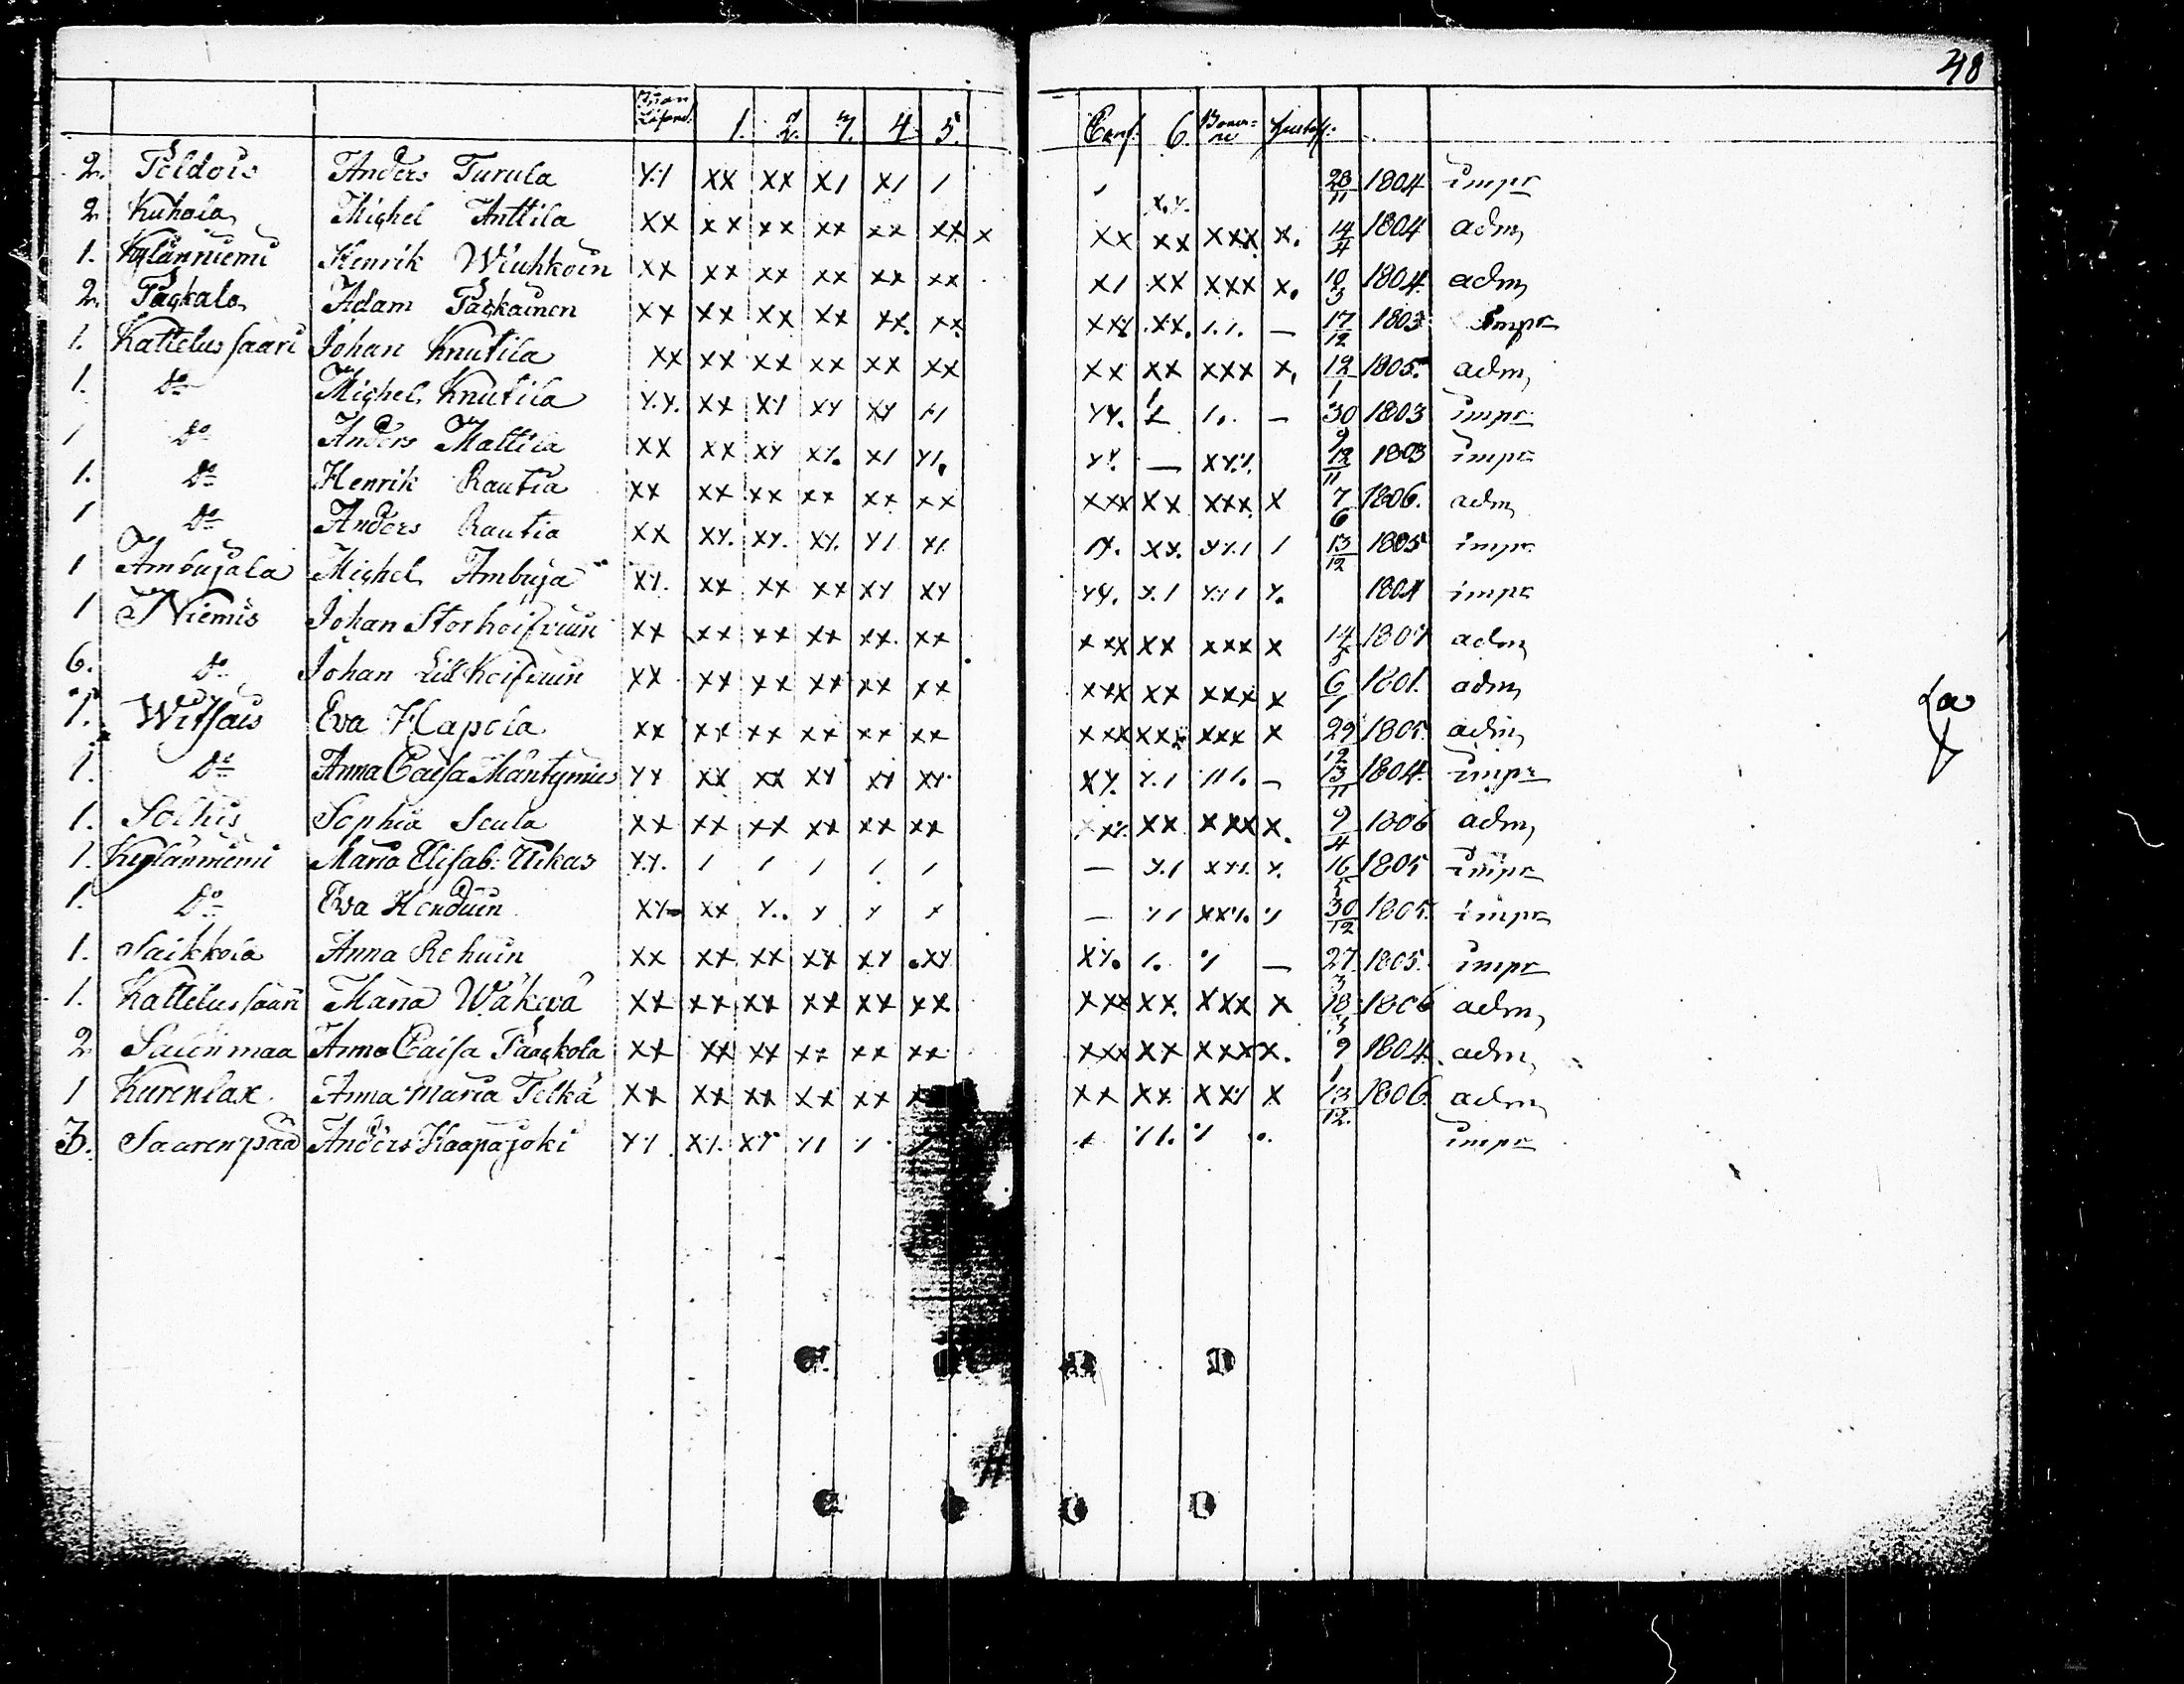 48
1. 2. 3. 4. 5. Conf. 6.
2. Peldois Anders Turula X/ XX XX X/ X/ / / X.X. 23/11 1804 impr
2. Kuhala Michel Anttila XX XX XX XX XX XX X XX XX XXX X. 14/4 1804 adm,
1. Kylänniemi Henrik Wiuhkoin XX XX XX XX XX XX X/ XX XXX X. 1804. adm,
2. Packala, Adam Packainen XX XX XX XX XX. XX. XXX XX. /./. — 17/12 1803 impr
1. Kattelus saari Johan Knutila XX XX XX XX XX XX XX XX XXX X, 12/1 1805. adm,
1. Do Michel Knutila X.X. XX X/ XX XX // XX. 1 /. — 30/9 1803 impr
1 Do Anders Mattila XX XX XX XX. X/ X/. XX. — XXX. 12/11 1803 impr
1. Do Henrik Rautia XX XX XX XX XX XX XXX XX XXX X 7/6 1806. adm,
1 Do Anders Rautia XX XX. XX. XX. X/ X/ /X. XX. XX/ / 13/12 1805 impr
1 Ambujala Michel Ambuja XX. XX XX XX XX XX XX. X/ XX/ X. 1804 impr
1 Niemis Johan Storhoifvuin XX XX XX XX XX. XX XXX XX XXX X 1807 adm,
6. Do Johan Lill Koifvuin XX XX XX XX XX XX XXX XX XXX X 6/1 1801. adm,
1. Witsais Eva Hapola XX XX XX XX XX XX XXX XXX XXX X 29/12 1805. adm,
1. Do Anna Caisa Mäntymies XX XX XX XX XX XX XX. X./ ///. — 13/11 1804. impr
1. Solhis Sophia Seula XX XX XX XX XX XX XXX XX XXX X. 9/4 1806 adm,
1. Kylänniemi Maria Elisab: Ukas XX. / / / / / — X./ XXX. X. 16/5 1805 impr
1. Do Eva Henduin XX XX X.. X X X — X/ XXX. X 30/12 1805. impr
1. Saikkola Anna Rehuin XX XX XX XX XX XX XX. /. X — 27/3 1805. impr
1. Kattelus saari Maria Wäkevä XX XX XX XX XX XX. XXX XX. XXX X 1806 adm,
2. Salenmaa Anna Caisa Paackola XX XX XX XX XX XX XXX XX XXX X. 9/1 1804. adm,
1 Kurenlax Anna Maria Telkä XX XX XX XX XX XX XX. XXX X 13/12. 1806. adm,
3. Saarenpää Anders Haapajoki XX X/. XX X/ X X X/. X impr